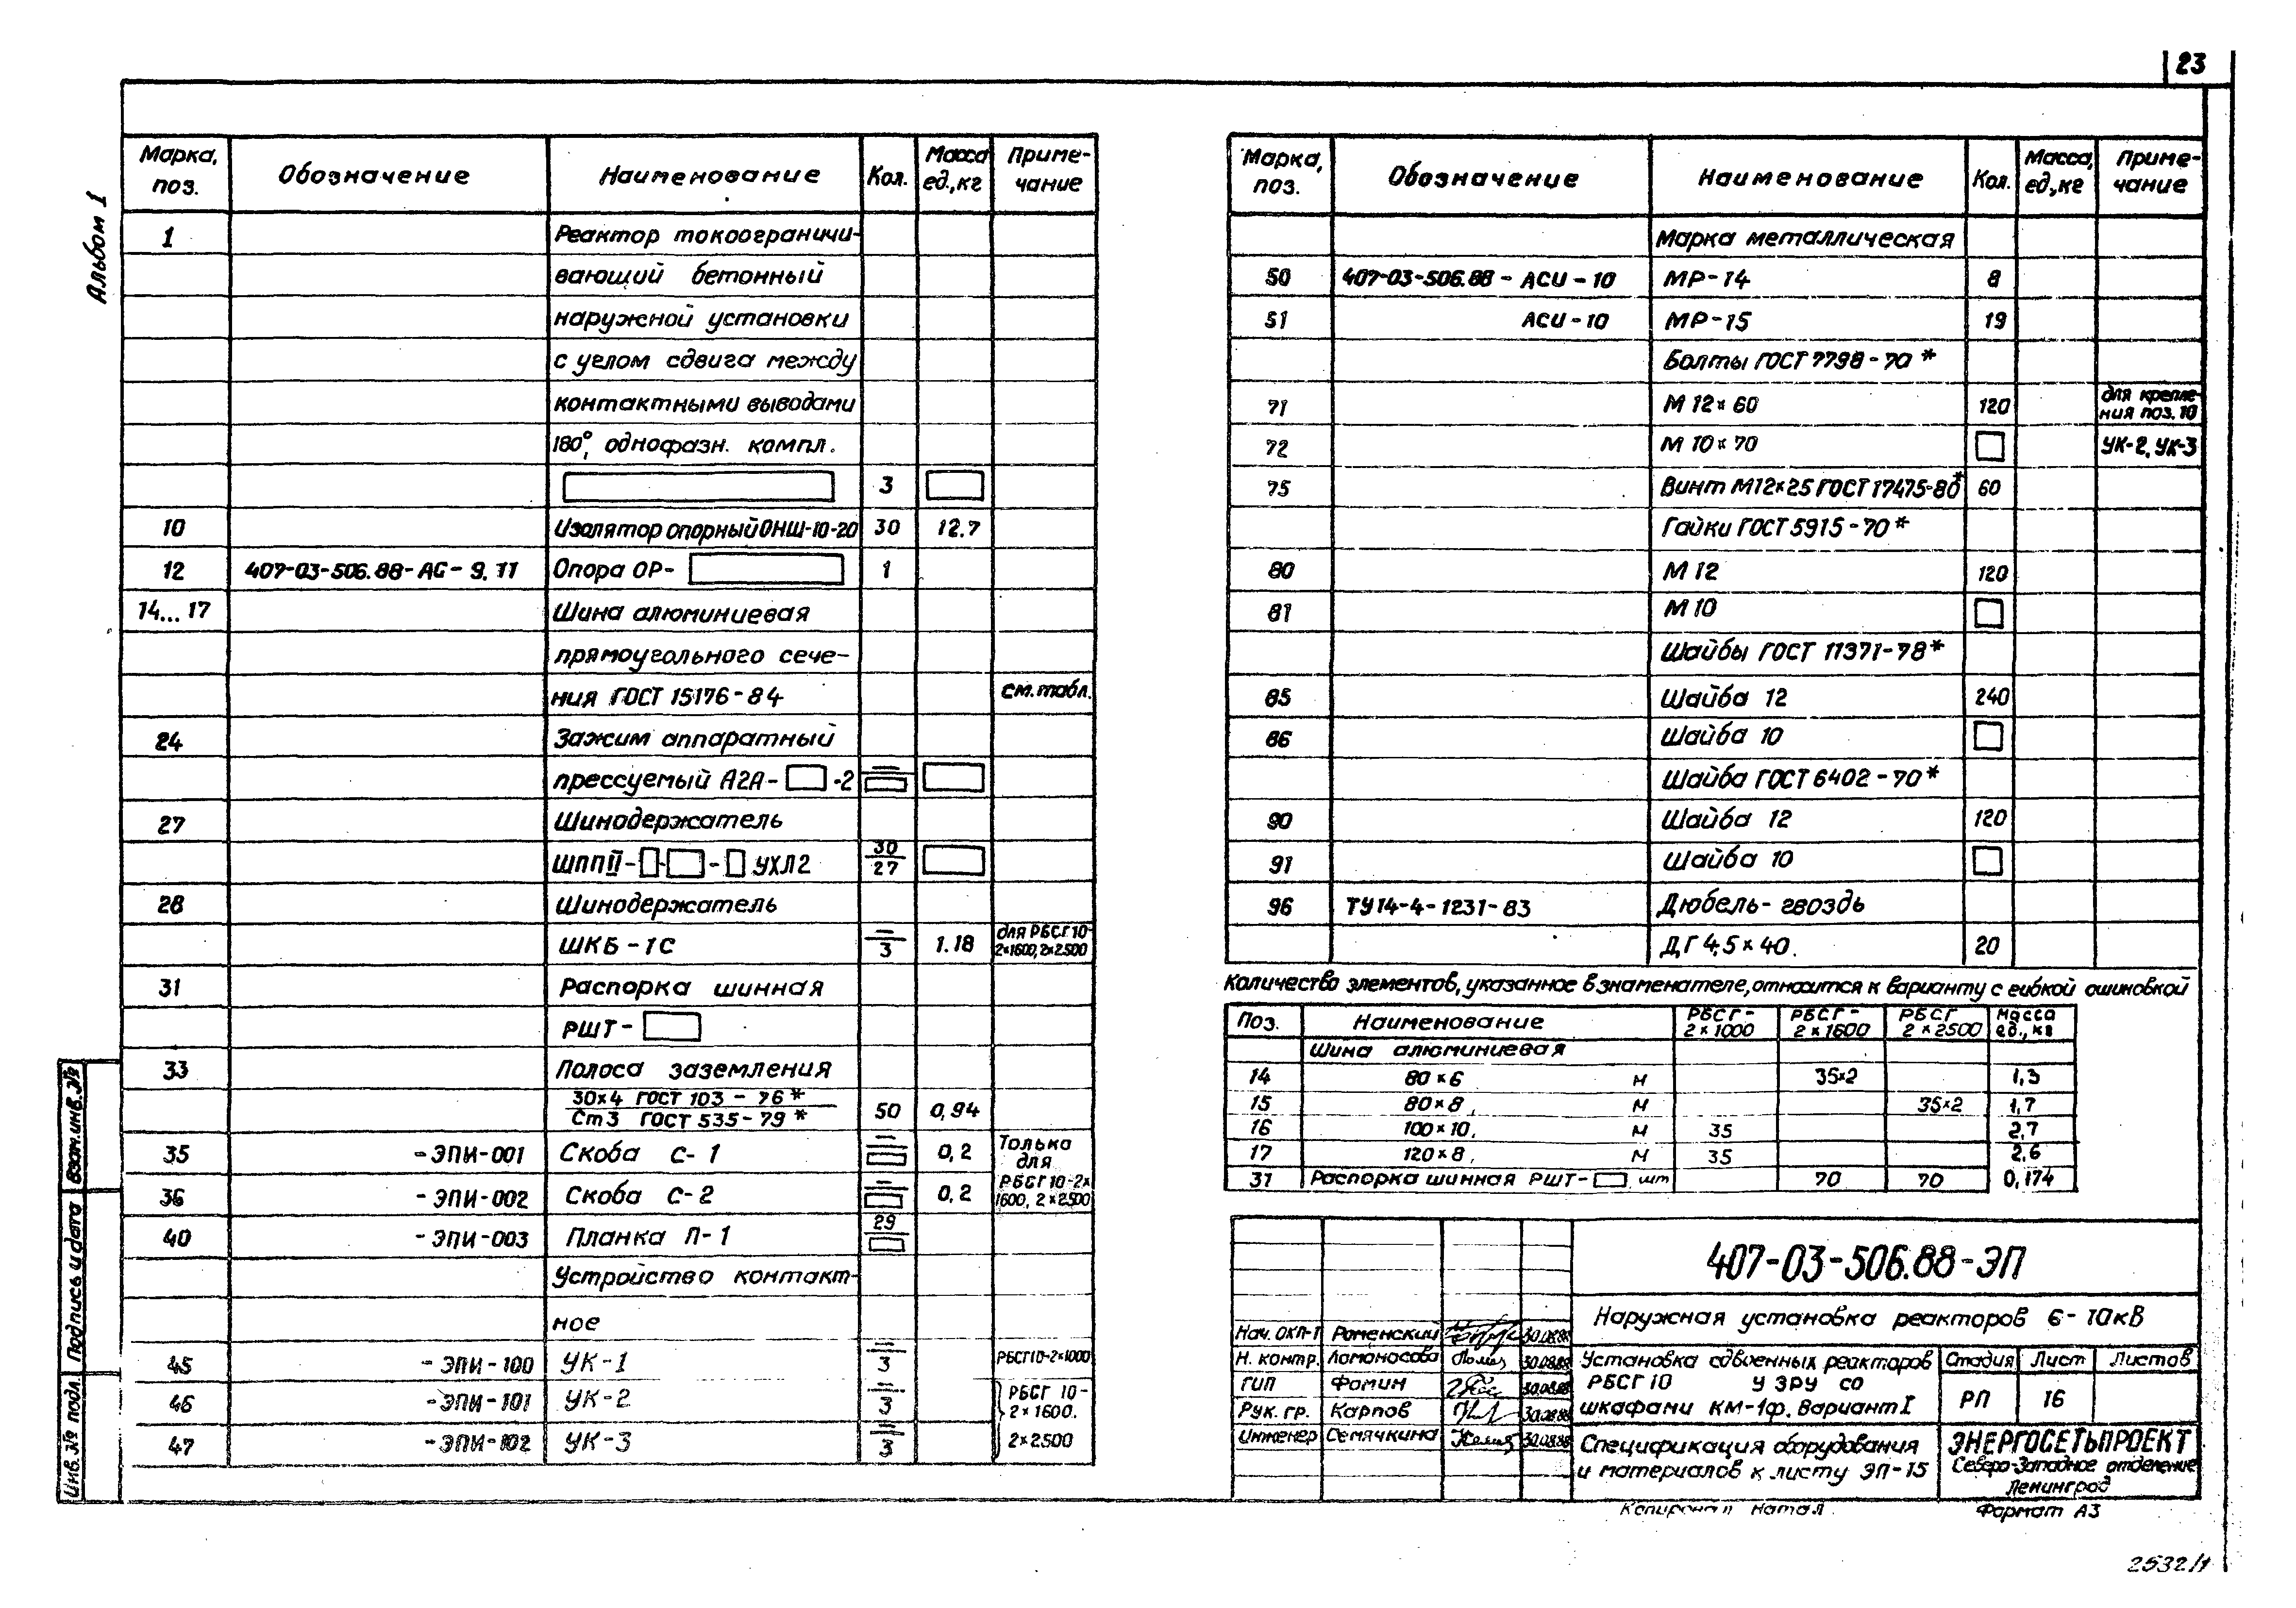 23
Альбом 1
Марка, поз. Обозначение Наименование Кол. Масса ед.,кг Приме-чание
1 Реактор токоограничи-
вающий бетонный
наружной установки
с углом сдвига между
контактными выводами
180°, однофазн. компл.
3
10 Изолятор опорный ОНШ-10-20 30 12.7
12 407-03-506.88-АС-9.11 Опора ОР- 1
14...17 Шина алюминиевая
прямоугольного сече-
ния ГОСТ 15176-84 см.табл.
24 Зажим аппаратный
прессуемый А2А- -2 –
27 Шинодержатель
ШППII- - - УХЛ2 30/27
28 Шинодержатель
ШКБ-1С –/3 1.18 для РБСГ10-2×1600, 2×2500
31 Распорка шинная
РШТ-
33 Полоса заземления
30×4 ГОСТ 103-76*
Ст3 ГОСТ 535-79* 50 0,94
35 -ЭПИ-001 Скоба С-1 – 0,2 Только для
36 -ЭПИ-002 Скоба С-2 – 0,2 РБСГ10-2×1600, 2×2500
40 -ЭПИ-003 Планка П-1 29
Устройство контакт-
ное
45 -ЭПИ-100 УК-1 –/3 РБСГ10-2×1000
46 -ЭПИ-101 УК-2 –/3 РБСГ 10-2×1600.
47 -ЭПИ-102 УК-3 –/3 2×2500
Марка, поз. Обозначение Наименование Кол. Масса, ед.,кг Приме-чание
Марка металлическая
50 407-03-506.88-АСИ-10 МР-14 8
51 АСИ-10 МР-15 19
Болты ГОСТ 7798-70*
71 М12×60 120 для крепле-ния поз.10
72 М10×70 УК-2, УК-3
75 Винт М12×25 ГОСТ 17475-80* 60
Гайки ГОСТ 5915-70*
80 М12 120
81 М10
Шайбы ГОСТ 11371-78*
85 Шайба 12 240
86 Шайба 10
Шайба ГОСТ 6402-70*
90 Шайба 12 120
91 Шайба 10
96 ТУ14-4-1231-83 Дюбель-гвоздь
ДГ 4,5×40. 20
Количество элементов, указанное в знаменателе, относится к варианту с гибкой ошиновкой
Поз. Наименование РБСГ-2×1000 РБСГ-2×1600 РБСГ 2×2500 Масса ед., кг
Шина алюминиевая
14 80×6 м 35×2 1,3
15 80×8, м 35×2 1,7
16 100×10, м 35 2,7
17 120×8, м 35 2,6
31 Распорка шинная РШТ- шт 70 70 0,174
407-03-506.88-ЭП
Наружная установка реакторов 6-10кВ
Нач. ОКП-1 Роменский 30.08.88
Н. контр. Ломоносова 30.08.88
ГИП Фомин 30.08.88
Рук. гр. Карпов 30.08.88
Инженер Семячкина 30.08.88
Установка сдвоенных реакторов
РБСГ10 у ЗРУ со
шкафами КМ-1ф. Вариант I
Стадия Лист Листов
РП 16
Спецификация оборудования
и материалов к листу ЭП-15
ЭНЕРГОСЕТЬПРОЕКТ
Северо-Западное отделение
Ленинград
Копировал Натал
Формат А3
2532/1
Взам.инв.№
Подпись и дата
Инв.№ подл.